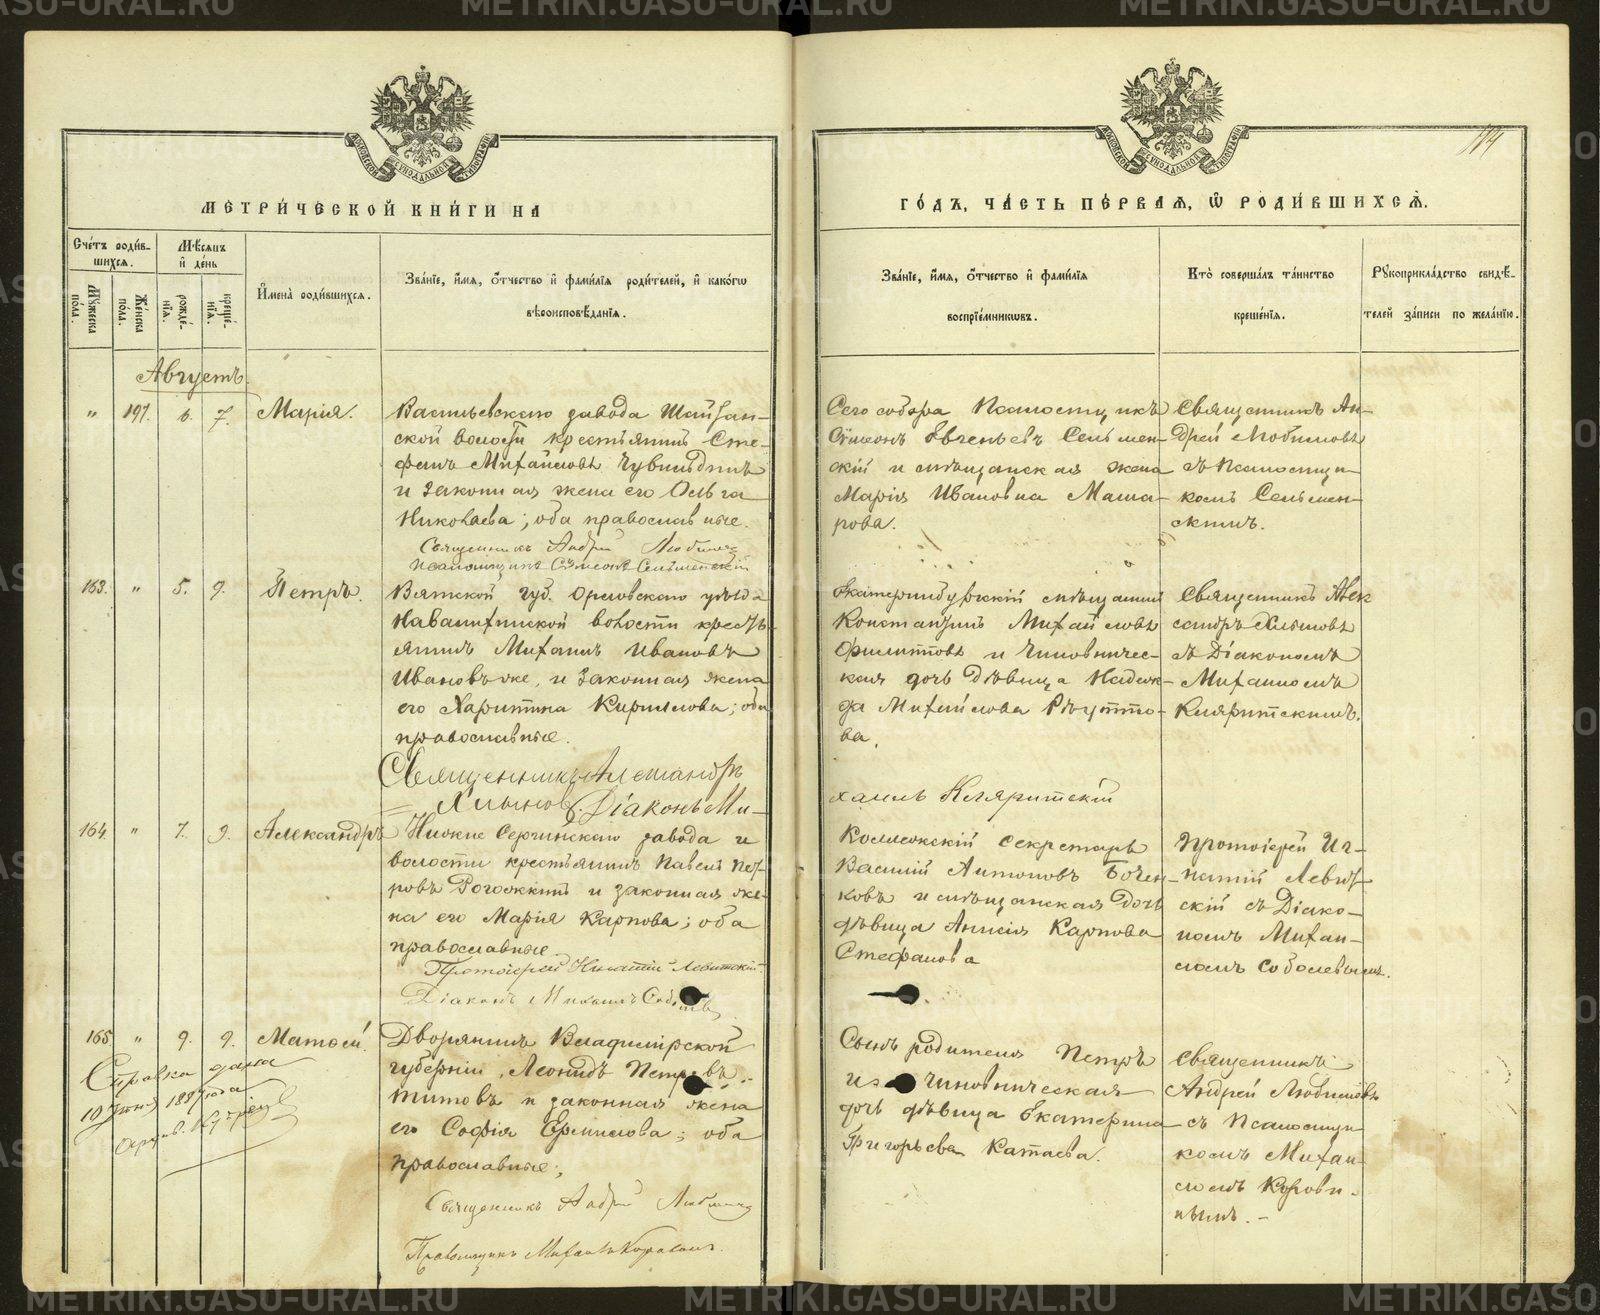 METRIKI.GASO-URAL.RU
МЕТРИ́ЧЕСКОЙ КНИ́ГИ НА
Сче́тъ роди́в-
шихсѧ.
Мѣ́сѧцъ
и҆ де́нь
Мꙋ́жеска
по́ла.
Же́нска
по́ла.
рожде́-
нїѧ.
креще́-
нїѧ.
И҆мена̀ роди́вшихсѧ.
Зва́нїе, и҆́мѧ, ѻ҆́тчество и҆ фами́лїѧ роди́телей, и҆ како́гѡ
вѣроисповѣ́данїѧ.
Августъ.
„ 197. 6. 7. Марія.
Васильевскаго завода Шайтан-
ской волости крестьянинъ Сте-
фанъ Михайловъ
и законная жена его Ольга
Николаева; оба православные.
Священникъ Андрей Любимовъ
Псаломщикъ Сѵмеонъ Сельменскій
163. „ 5. 9. Петръ.
Вятской губ. Орловскаго уѣзда
волости кресть-
янинъ Михаилъ Ивановъ
Ивановъ же, и законная жена
его Харитина Кириллова; оба
православные.
Священникъ Александръ
Хлыновъ. Діаконъ Ми-
164. „ 7. 9. Александръ
Нижне Сергинскаго завода и
волости крестьянинъ Павелъ Пет-
ровъ и законная же-
на его Марія Карпова; оба
православные.
Протоіерей Игнатій Левитскій.
Діаконъ Михаилъ
165. „ 9. 9. Матѳей.
Дворянинъ Владимірской
губерніи, Леонидъ Петровъ
Титовъ и законная жена
его Софія Ермилова; оба
православные;
Священникъ Андрей Любимовъ
Псаломщикъ Михаилъ Коровинъ.
Справка дана
10 1887 года
ГО́ДЪ, ЧА́СТЬ ПЕ́РВАѦ, Ѡ҆ РОДИ́ВШИХСѦ.
Зва́нїе, и҆́мѧ, ѻ҆́тчество и҆ фами́лїѧ
воспрїе́мникѡвъ.
Кто̀ соверша́лъ та́инство
креще́нїѧ.
Рꙋкоприкла́дство свидѣ́-
телей за́писи по жела́нїю.
Сего собора Псаломщикъ
Сѵмеонъ Евгеньевъ Сельмен-
скій и мѣщанская жена
Марія Ивановна Маша-
рова.
Священникъ Ан-
дрей Любимовъ
съ псаломщи-
комъ Сельмен-
скимъ.
Екатеринбургскій мѣщанинъ
Константинъ Михайловъ
Филиповъ и чиновничес-
кая дочь дѣвица Надеж-
да Михайлова
ва.
Священникъ Алек
сандръ Хлыновъ
съ Діакономъ
Михаиломъ
Кляритскимъ.
хаилъ Кляритскій
Коллежскій секретарь
Василій Антоновъ Бочен-
ковъ и мѣщанская дочь
дѣвица Анисія Карпова
Стефанова
Протоіерей Иг-
натій Левит-
скій съ Діако-
номъ Михаи-
ломъ Соболевымъ.
Сынъ родителя Петръ
и чиновническая
дочь дѣвица Екатерина
Григорьева Катаева.
Священникъ
Андрей Любимовъ
съ Псаломщи-
комъ Михаи-
ломъ Корови-
нымъ.